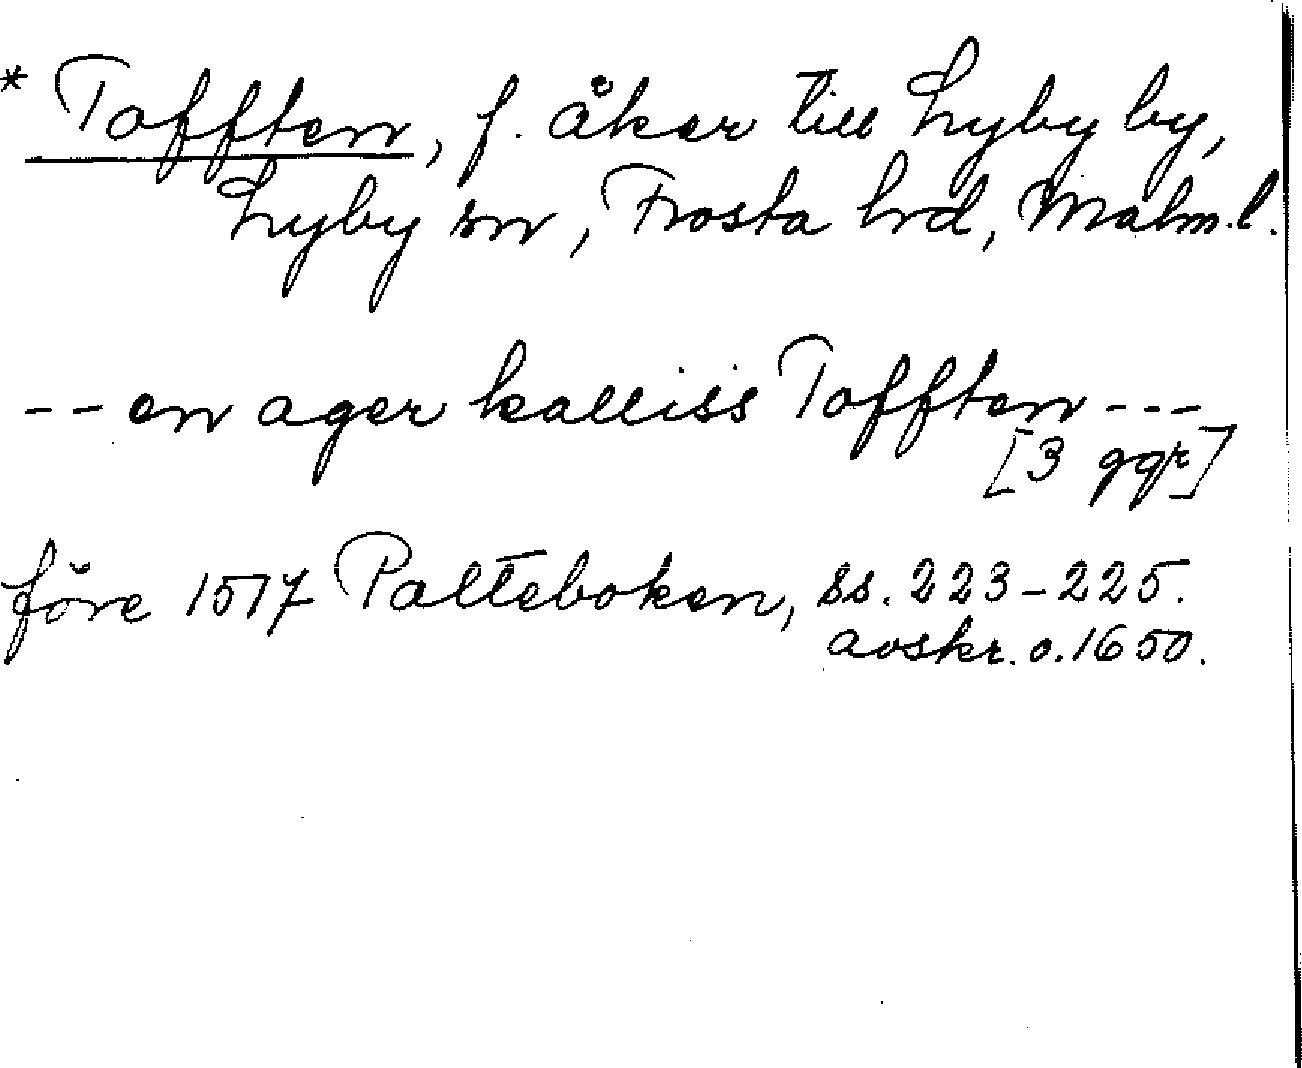 * Tofften, f. åker till Lyby by,
Lyby sn, Frosta hd, Malm. l.
-- en ager kalliss Tofften ---
[3 ggr]
före 1517 Palteboken, ss. 223-225.
avskr. o. 1650.